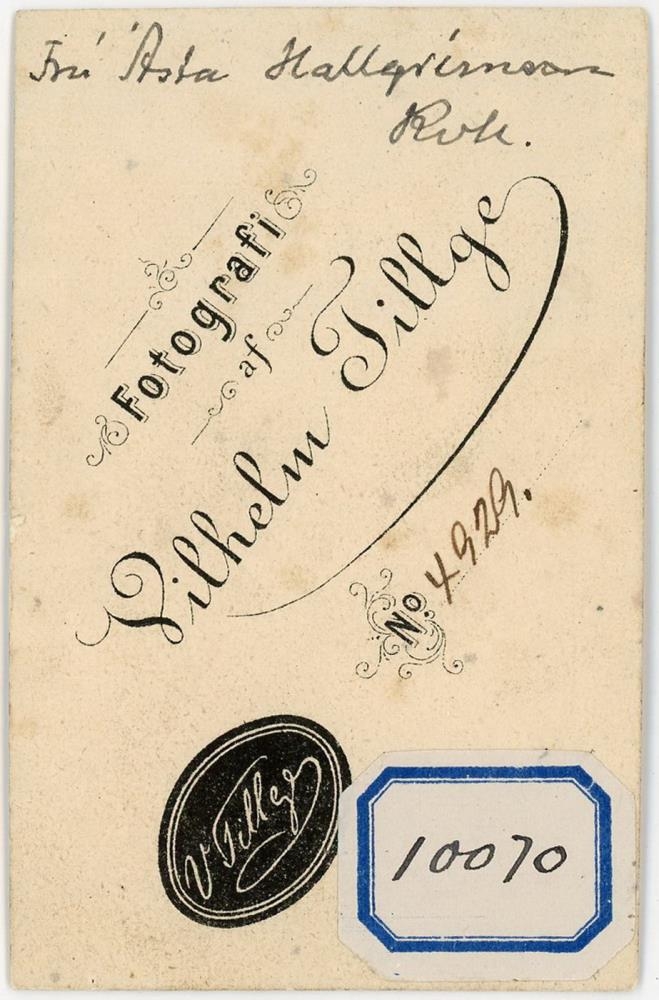 Frú Ásta Hallgrímsson
Rvk.
Fotografi
af
Vilhelm Tillge
No. 4929.
V Tillge
10070